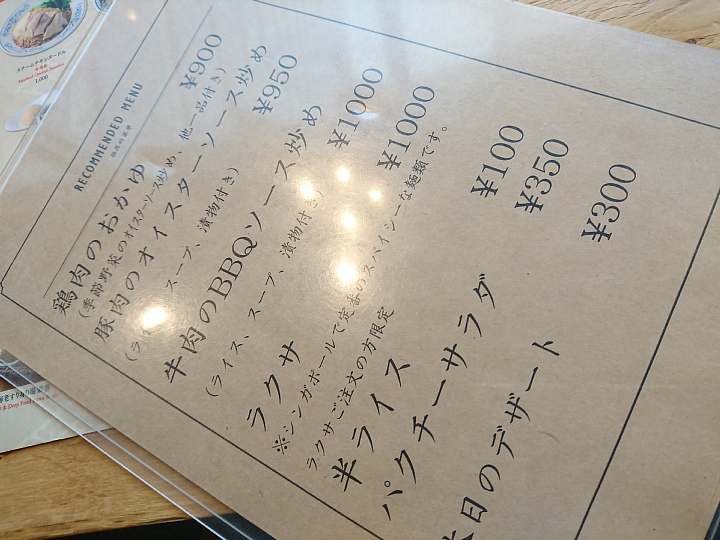 RECOMMENDED MENU
鶏肉のおかゆ ¥900
(季節野菜のオイスターソース炒め、他一品付き)
豚肉のオイスターソース炒め ¥950
スープ、漬物付き)
牛肉のBBQソース炒め ¥1000
(ライス、スープ、漬物付き)
ラクサ ¥1000
※シンガポールで定番のスパイシーな麺類です。
ラクサご注文の方限定
半ライス ¥100
パクチーサラダ ¥350
本日のデザート ¥300
スチームチキンヌードル
1,000